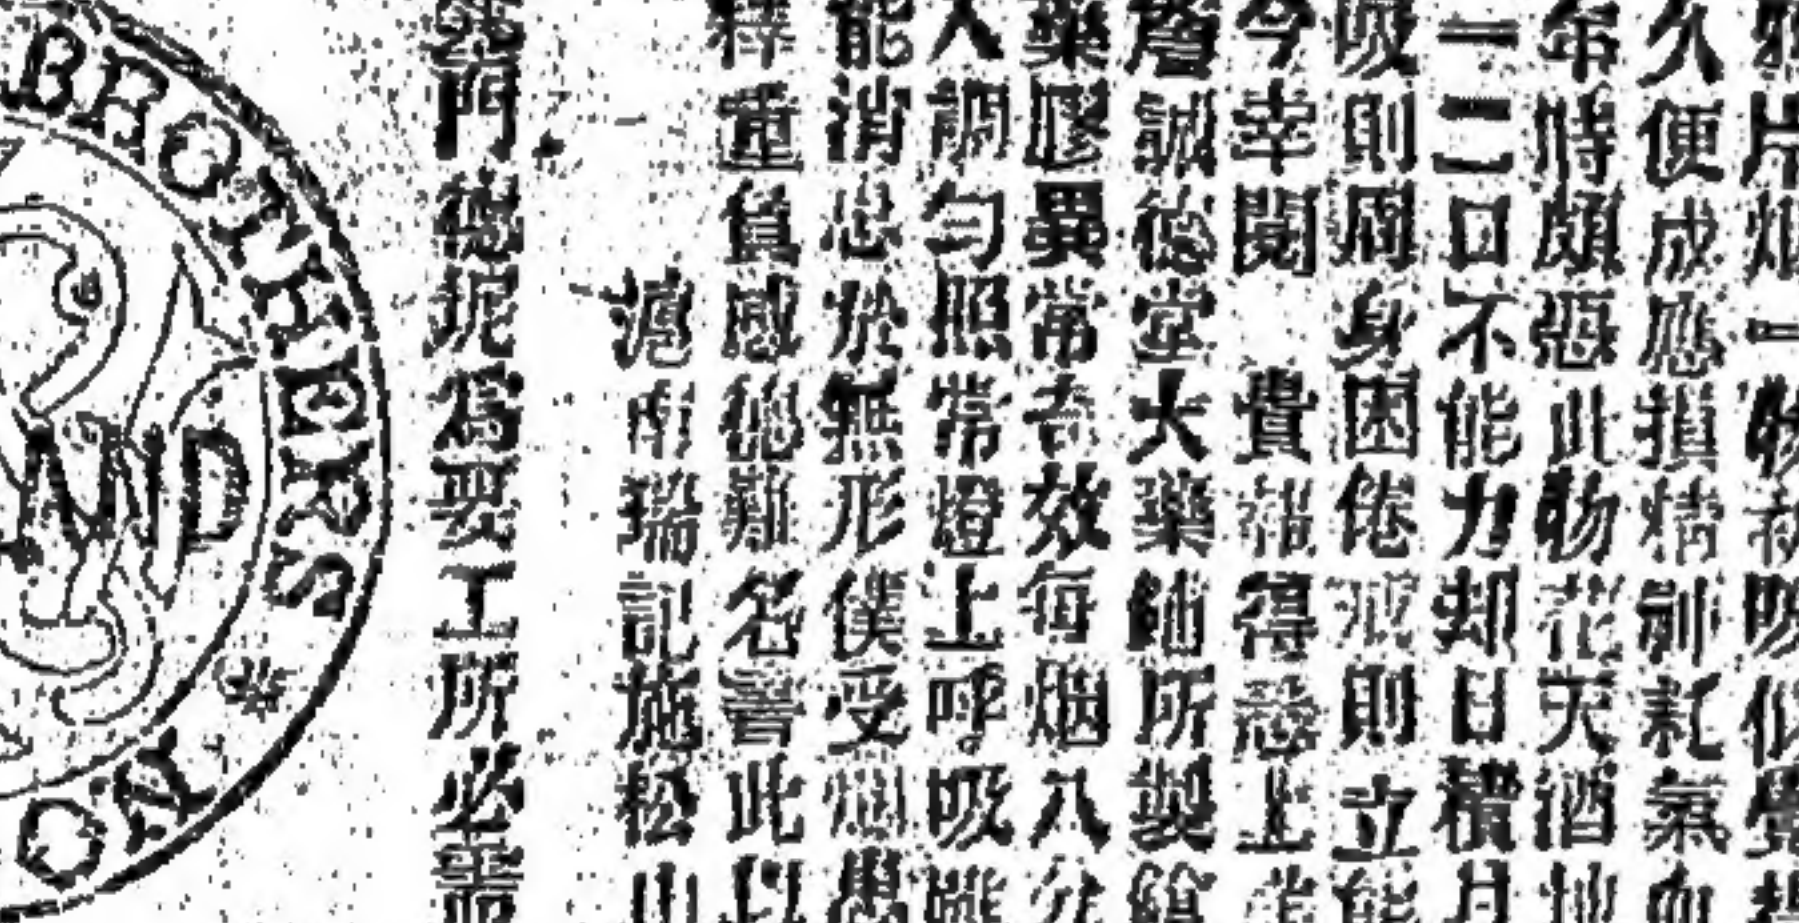 雅片烟一物初吸似覺
久便成應損精耗氣血
年時頗惡此物花天酒地
一二日不能力却日積月
吸則周身困倦戒則立能
今幸閱 貴報得悉上
誠德堂大藥鋪所製
藥膠異常奇效每烟八分
人調勻照常燈上呼吸
能消患於無形僕受烟愚
釋重負感德難名書此以
滬南瑞記施松山
門德坭為要工所必需
BROTHERS
AND
ON